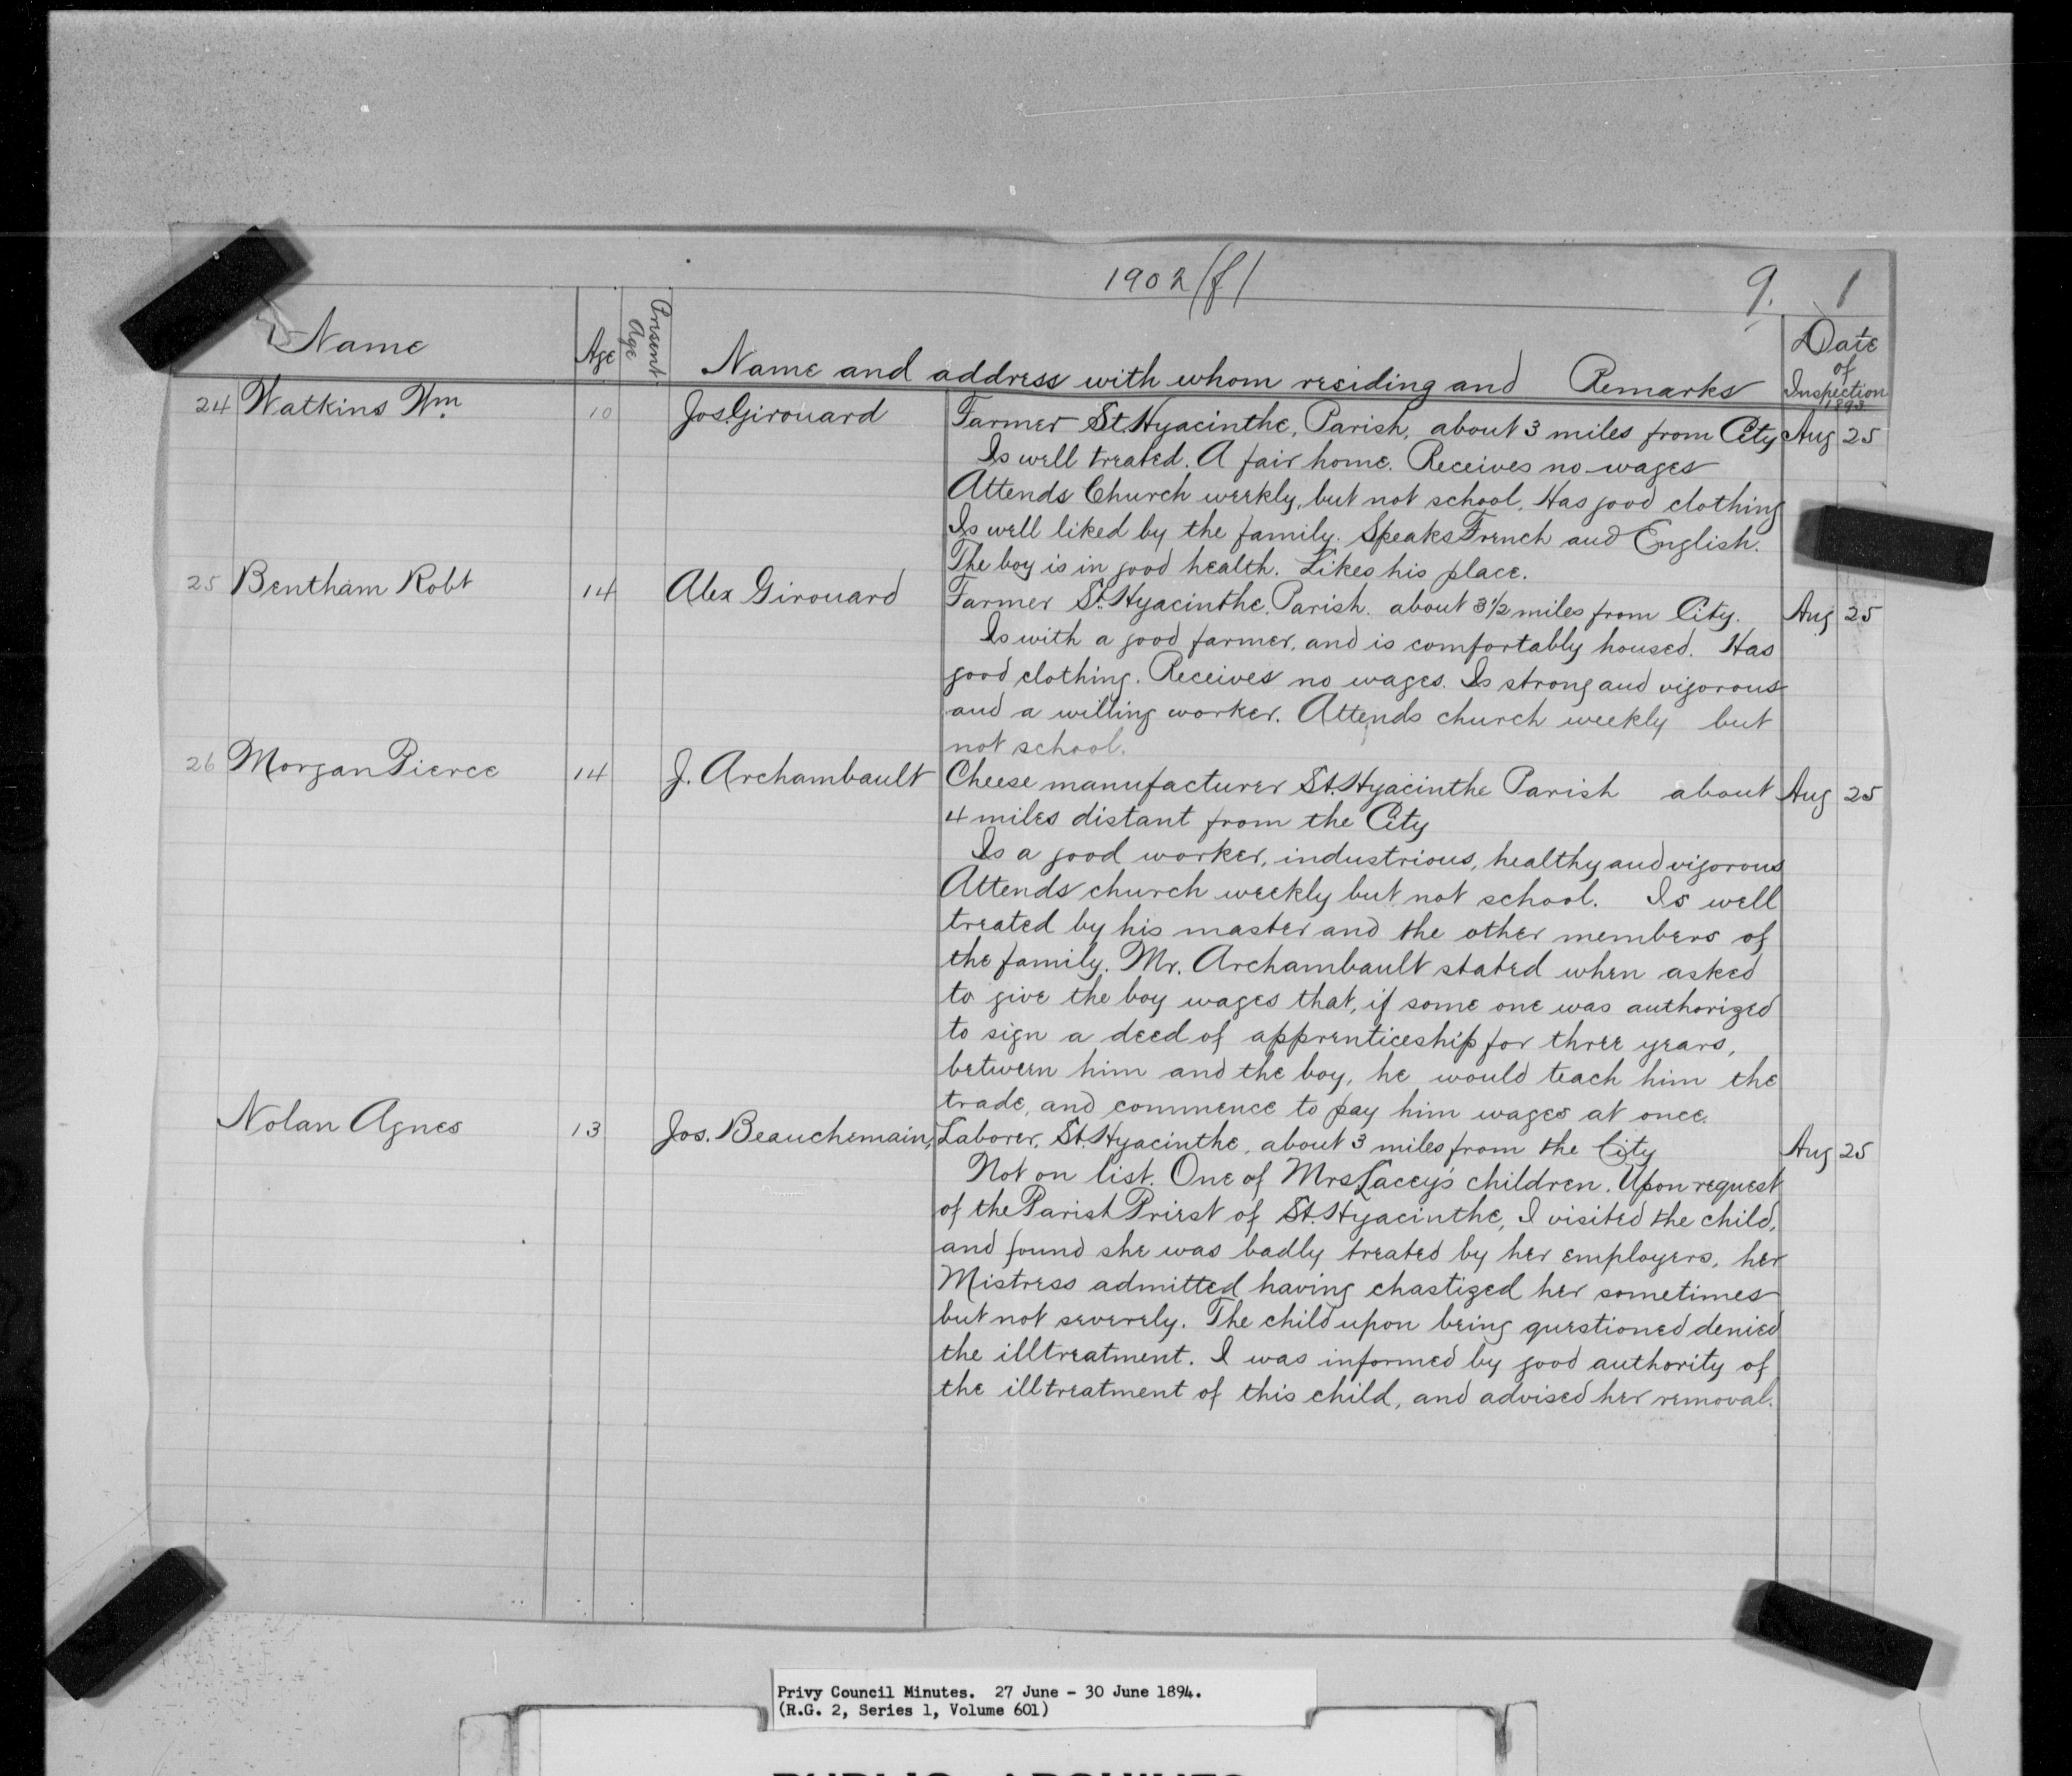 1902/f/ 9. 1
Name Age Present Age Name and address with whom residing and Remarks Date of Inspection 1893
24 Watkins Wm 10 Jos. Girouard Farmer St. Hyacinthe, Parish, about 3 miles from City Aug 25
Is well treated. A fair home. Receives no wages
Attends Church weekly, but not school. Has good clothing
Is well liked by the family. Speaks French and English.
The boy is in good health. Likes his place.
25 Bentham Robt 14 Alex Girouard Farmer St. Hyacinthe, Parish, about 3 1/2 miles from City. Aug 25
Is with a good farmer, and is comfortably housed. Has
good clothing. Receives no wages. Is strong and vigorous
and a willing worker. Attends church weekly but
not school.
26 Morgan Pierce 14 J. Archambault Cheese manufacturer St. Hyacinthe Parish about Aug 25
4 miles distant from the City
Is a good worker, industrious, healthy and vigorous
Attends church weekly but not school. Is well
treated by his master and the other members of
the family. Mr. Archambault stated when asked
to give the boy wages that, if some one was authorized
to sign a deed of apprenticeship for three years,
between him and the boy, he would teach him the
trade, and commence to pay him wages at once.
Nolan Agnes 13 Jos. Beauchemain, Laborer, St. Hyacinthe, about 3 miles from the City Aug 25
Not on list. One of Mrs Lacey's children. Upon request
of the Parish Priest of St. Hyacinthe, I visited the child,
and found she was badly treated by her employers, her
Mistress admitted having chastized her sometimes
but not severely. The child upon being questioned denied
the illtreatment. I was informed by good authority of
the illtreatment of this child, and advised her removal.
Privy Council Minutes. 27 June - 30 June 1894.
(R.G. 2, Series 1, Volume 601)
PUBLIC ARCHIVES